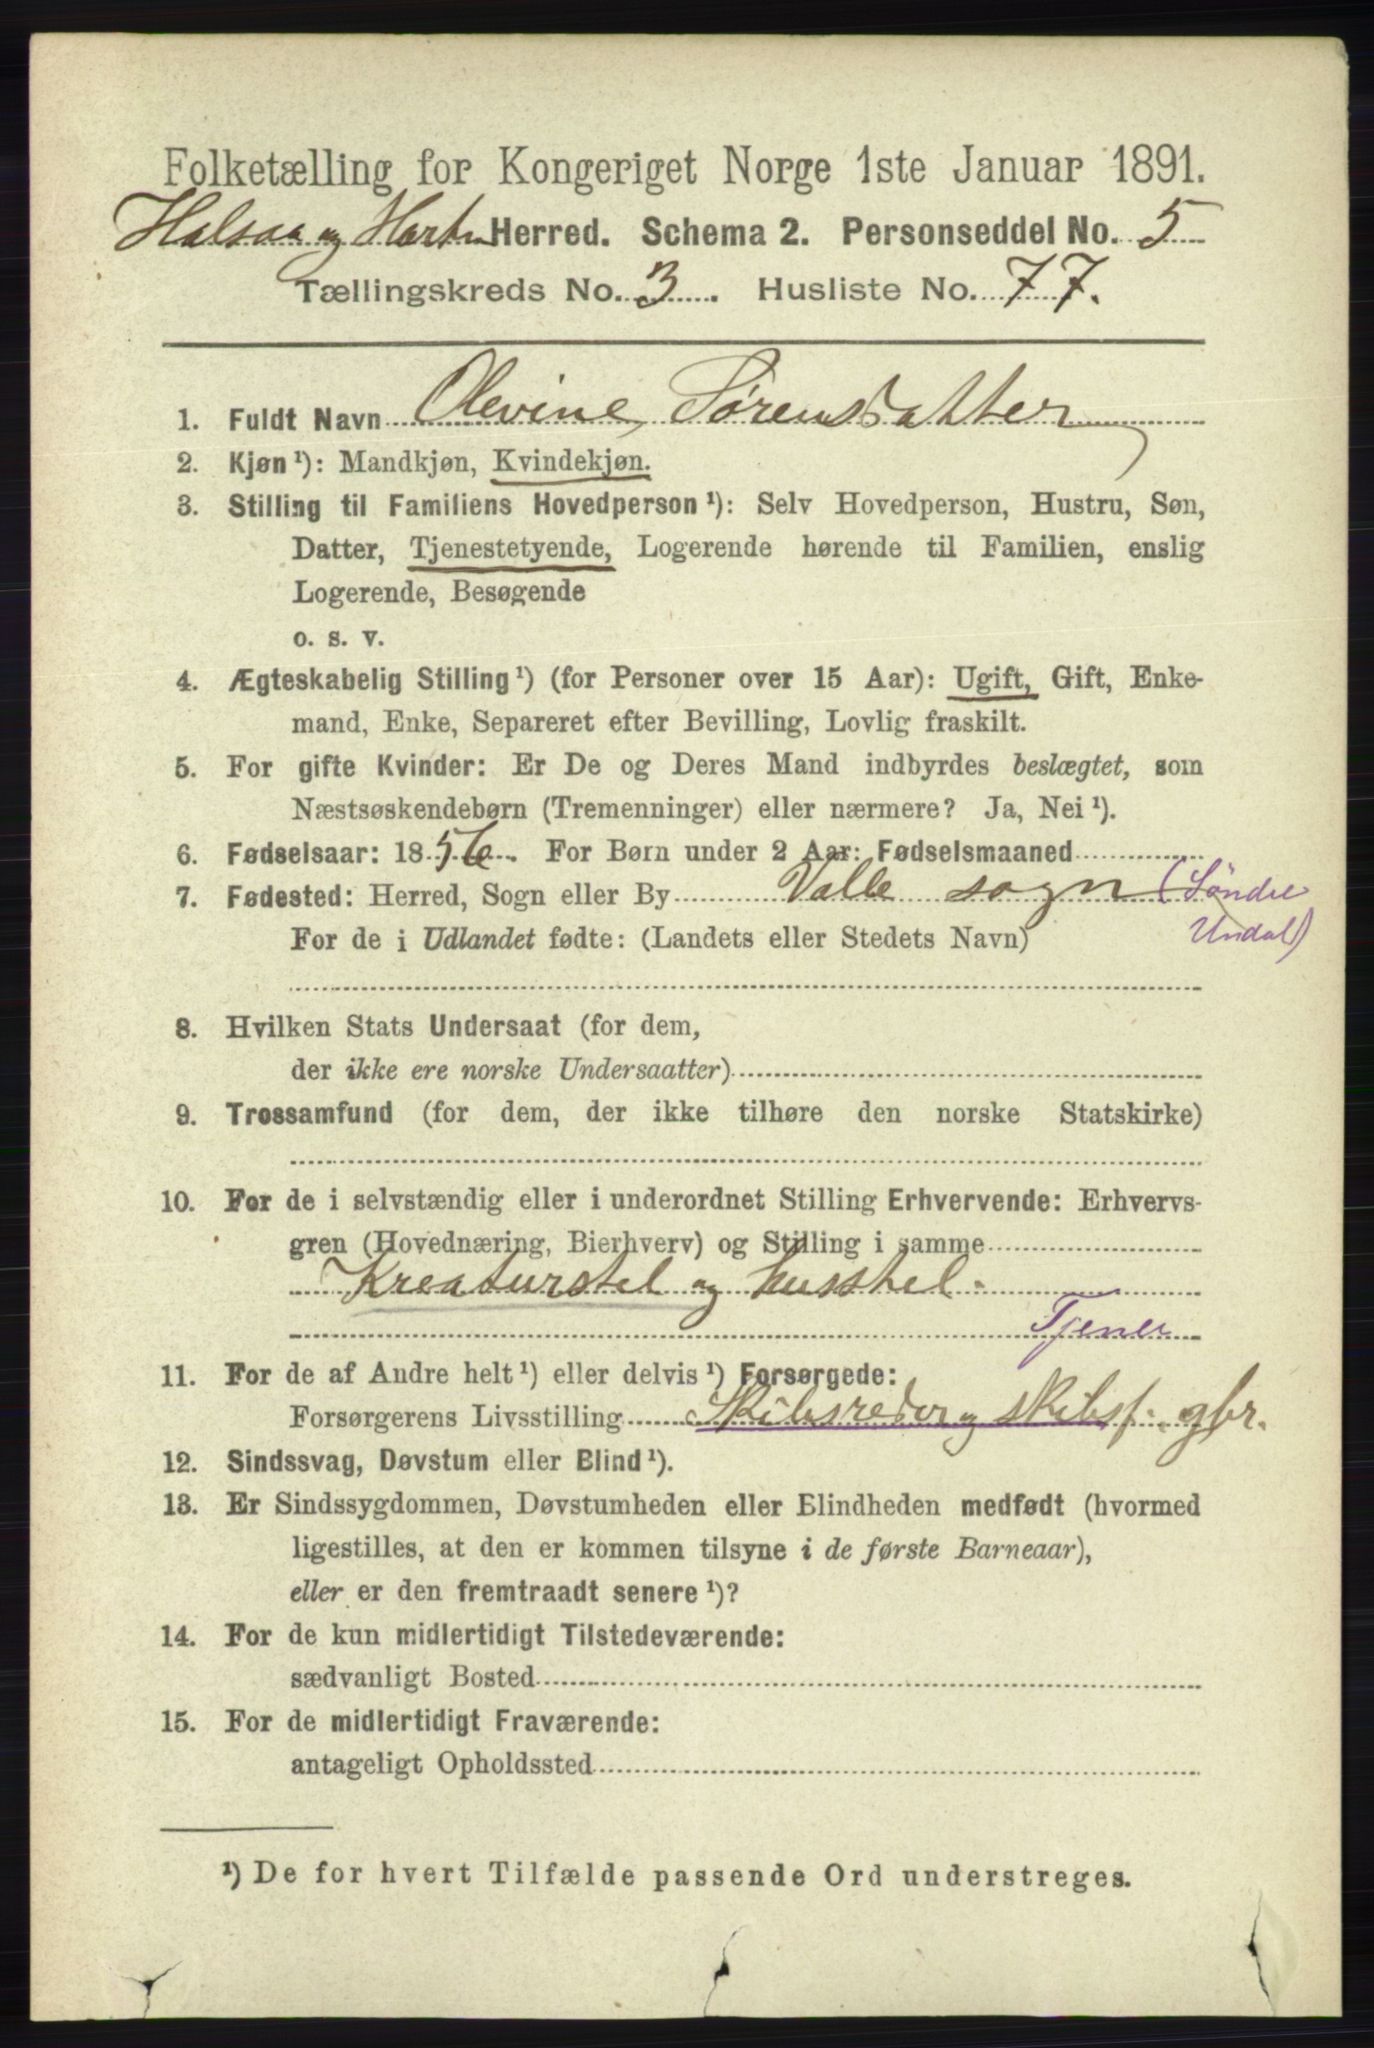 Folketælling for Kongeriget Norge 1ste Januar 1891.
Halsaa og Hartm Herred. Schema 2. Personseddel No. 5
Tællingskreds No. 3. Husliste No. 77.
1. Fuldt Navn Olevine Sørensdatter
2. Kjøn ¹): Mandkjøn, Kvindekjøn.
3. Stilling til Familiens Hovedperson ¹): Selv Hovedperson, Hustru, Søn,
Datter, Tjenestetyende, Logerende hørende til Familien, enslig
Logerende, Besøgende
o. s. v.
4. Ægteskabelig Stilling ¹) (for Personer over 15 Aar): Ugift, Gift, Enke-
mand, Enke, Separeret efter Bevilling, Lovlig fraskilt.
5. For gifte Kvinder: Er De og Deres Mand indbyrdes beslægtet, som
Næstsøskendebørn (Tremenninger) eller nærmere? Ja, Nei ¹).
6. Fødselsaar: 1856. For Børn under 2 Aar: Fødselsmaaned
7. Fødested: Herred, Sogn eller By Valle sogn (Söndre
Undal)
For de i Udlandet fødte: (Landets eller Stedets Navn)
8. Hvilken Stats Undersaat (for dem,
der ikke ere norske Undersaatter)
9. Trossamfund (for dem, der ikke tilhøre den norske Statskirke)
10. For de i selvstændig eller i underordnet Stilling Erhvervende: Erhvervs-
gren (Hovednæring, Bierhverv) og Stilling i samme
Kreaturstel og husstel.
Tjener
11. For de af Andre helt ¹) eller delvis ¹) Forsørgede:
Forsørgerens Livsstilling Skibsreder og skibsf. gbr.
12. Sindssvag, Døvstum eller Blind ¹).
13. Er Sindssygdommen, Døvstumheden eller Blindheden medfødt (hvormed
ligestilles, at den er kommen tilsyne i de første Barneaar),
eller er den fremtraadt senere ¹)?
14. For de kun midlertidigt Tilstedeværende:
sædvanligt Bosted
15. For de midlertidigt Fraværende:
antageligt Opholdssted
¹) De for hvert Tilfælde passende Ord understreges.